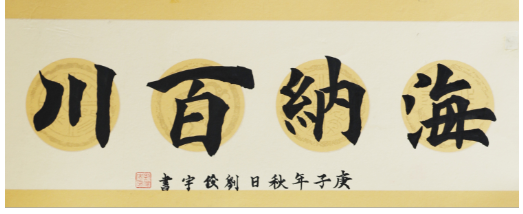 海納百川
庚子年秋日劉宇書